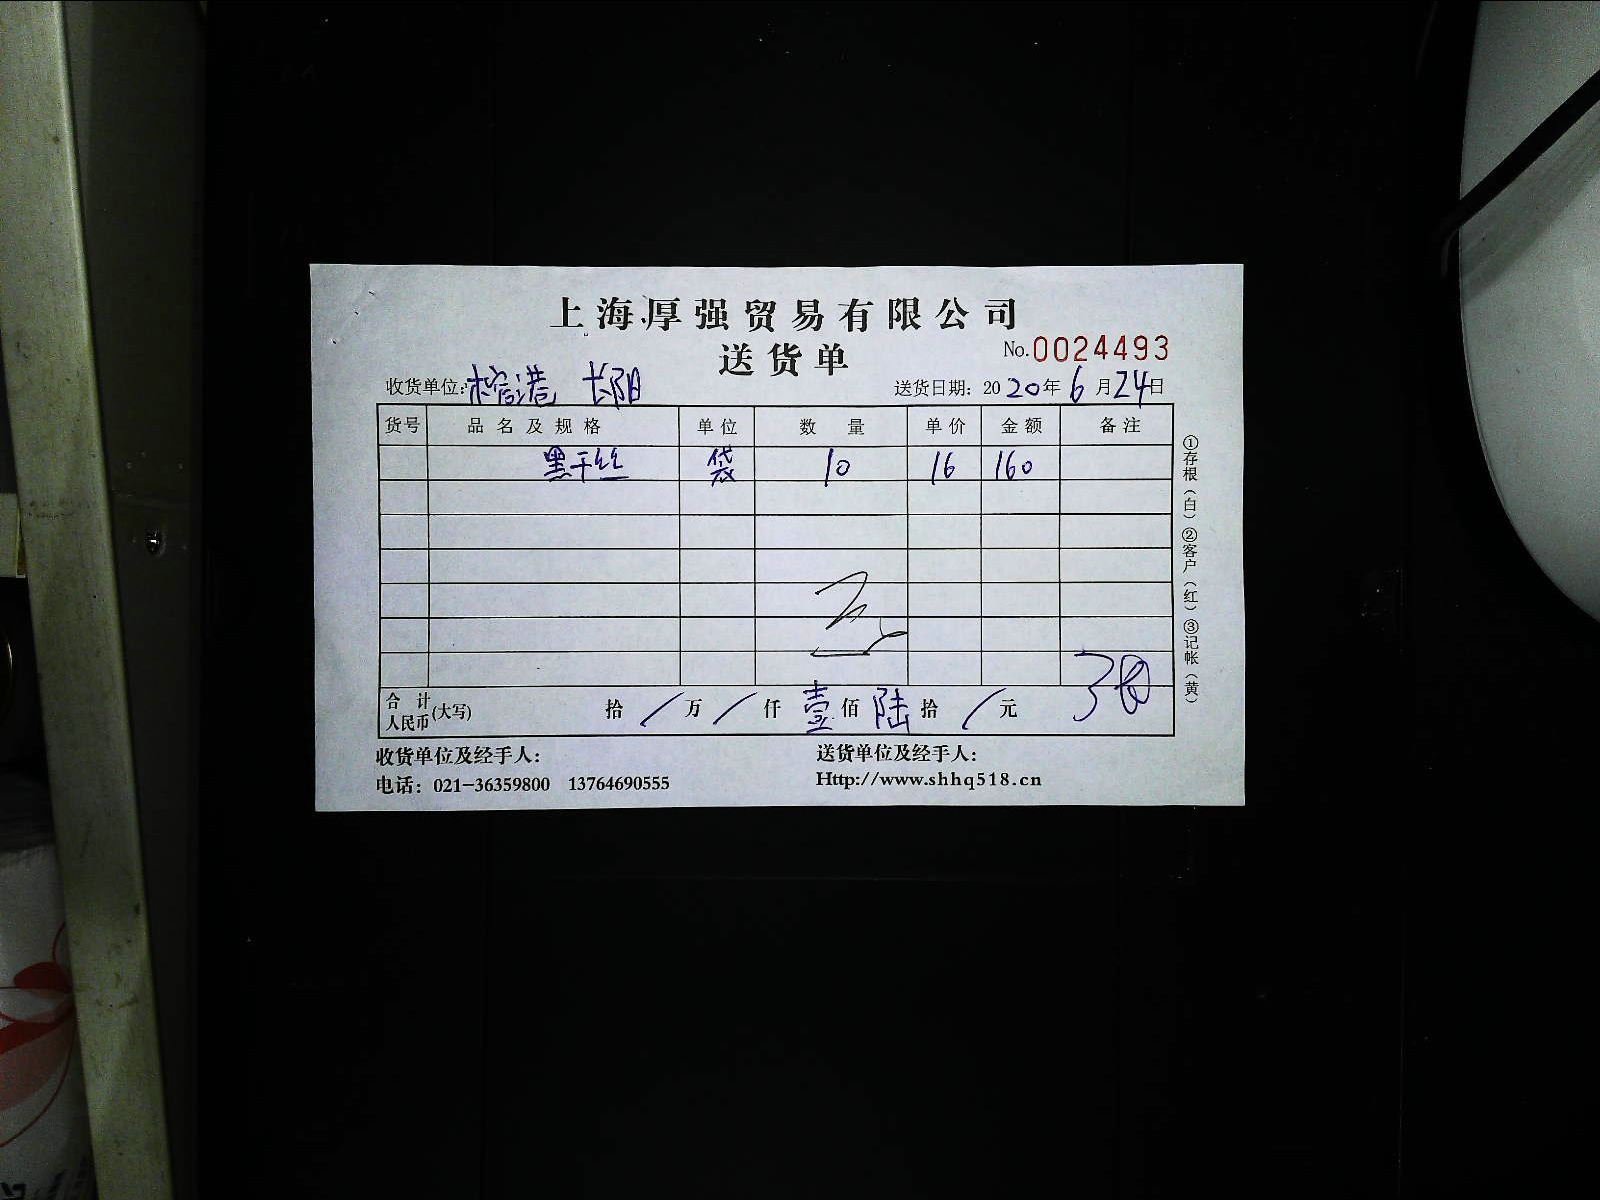 上海厚强贸易有限公司
送货单
No.0024493
收货单位:榕港 长阳
送货日期: 2020年6月24日
货号 品名及规格 单位 数量 单价 金额 备注
黑干丝 袋 10 16 160
合计人民币(大写) 拾 / 万 / 仟 壹 佰 陆 拾 / 元
收货单位及经手人:
送货单位及经手人:
电话: 021-36359800 13764690555
Http://www.shhq518.cn
①存根(白)②客户(红)③记帐(黄)